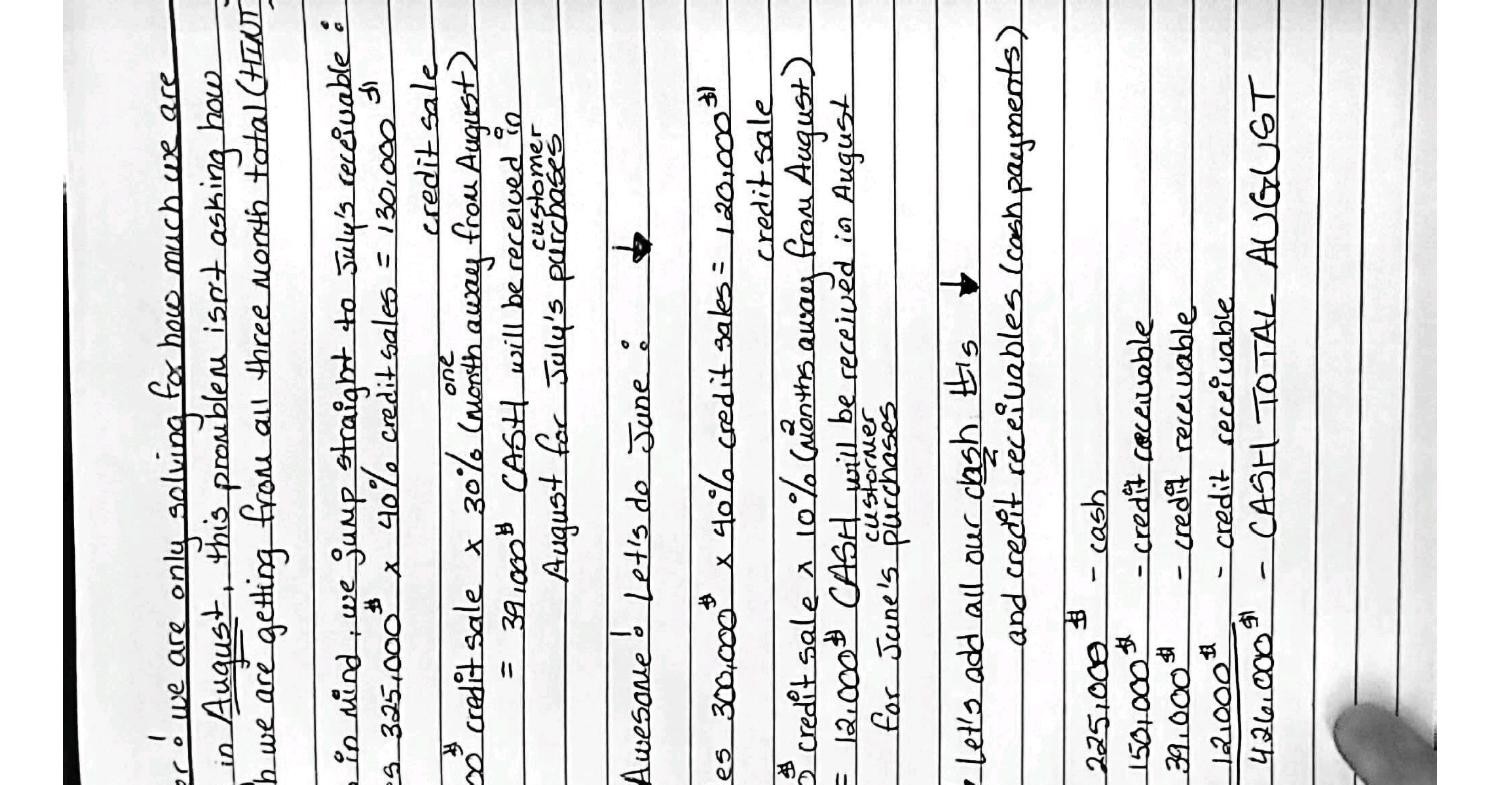 or! we are only solving for how much we are
in August, this problem isn't asking how
h we are getting from all three month total (HINT
in mind, we jump straight to July's receivable:
es 325,000$ x 40% credit sales = 130,000$
credit sale
00$ credit sale x 30% (one month away from August)
= 39,000$ CASH will be received in
August for July's customer purchases
Awesome! Let's do June: ↓
es 300,000$ x 40% credit sales = 120,000$
credit sale
0$ credit sale x 10% (2 months away from August)
= 12,000$ CASH will be received in August
for June's customer purchases
Let's add all our cash ↓
and credit receivables (cash payments)
225,000$ - cash
150,000$ - credit receivable
39,000$ - credit receivable
12,000$ - credit receivable
426,000$ - CASH TOTAL AUGUST